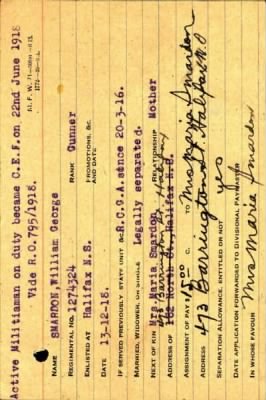 Active Militiaman on duty became C.E.F. on 22nd June 1918
Vide R.O.795/1918.
M. F. W.
NAME SMARDON, William George
REGIMENTAL NO. 1274324 RANK Gunner
ENLISTED AT Halifax N.S. PROMOTIONS, &C. AND DATE
DATE 13-12-18.
IF SERVED PREVIOUSLY STATE UNIT &c R.C.G.A. since 20-3-16.
MARRIED, WIDOWER, OR SINGLE Legally separated.
NEXT OF KIN Mrs Maria Smardon, RELATIONSHIP Mother
473 Barrington St
ADDRESS OF North St., Halifax N.S.
ASSIGNMENT OF PAY $15.00 C. TO Mrs Maria Smardon
ADDRESS 473 Barrington St. Halifax N.S.
SEPARATION ALLOWANCE, ENTITLED OR NOT yes
DATE APPLICATION FORWARDED TO DIVISIONAL PAYMASTER
IN WHOSE FAVOUR Mrs Maria Smardon